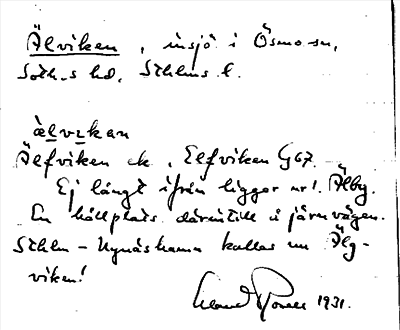 Älviken, insjö i Ösmo sn,
Soth-s hd, Sthlms l.
älvikan
Älfviken ek, Elfviken G67.
Ej långt ifrån ligger nr 1. Älby.
En hållplats därintill å järnvägen
Sthlm - Nynäshamn kallas nu Älg-
viken!
1931.